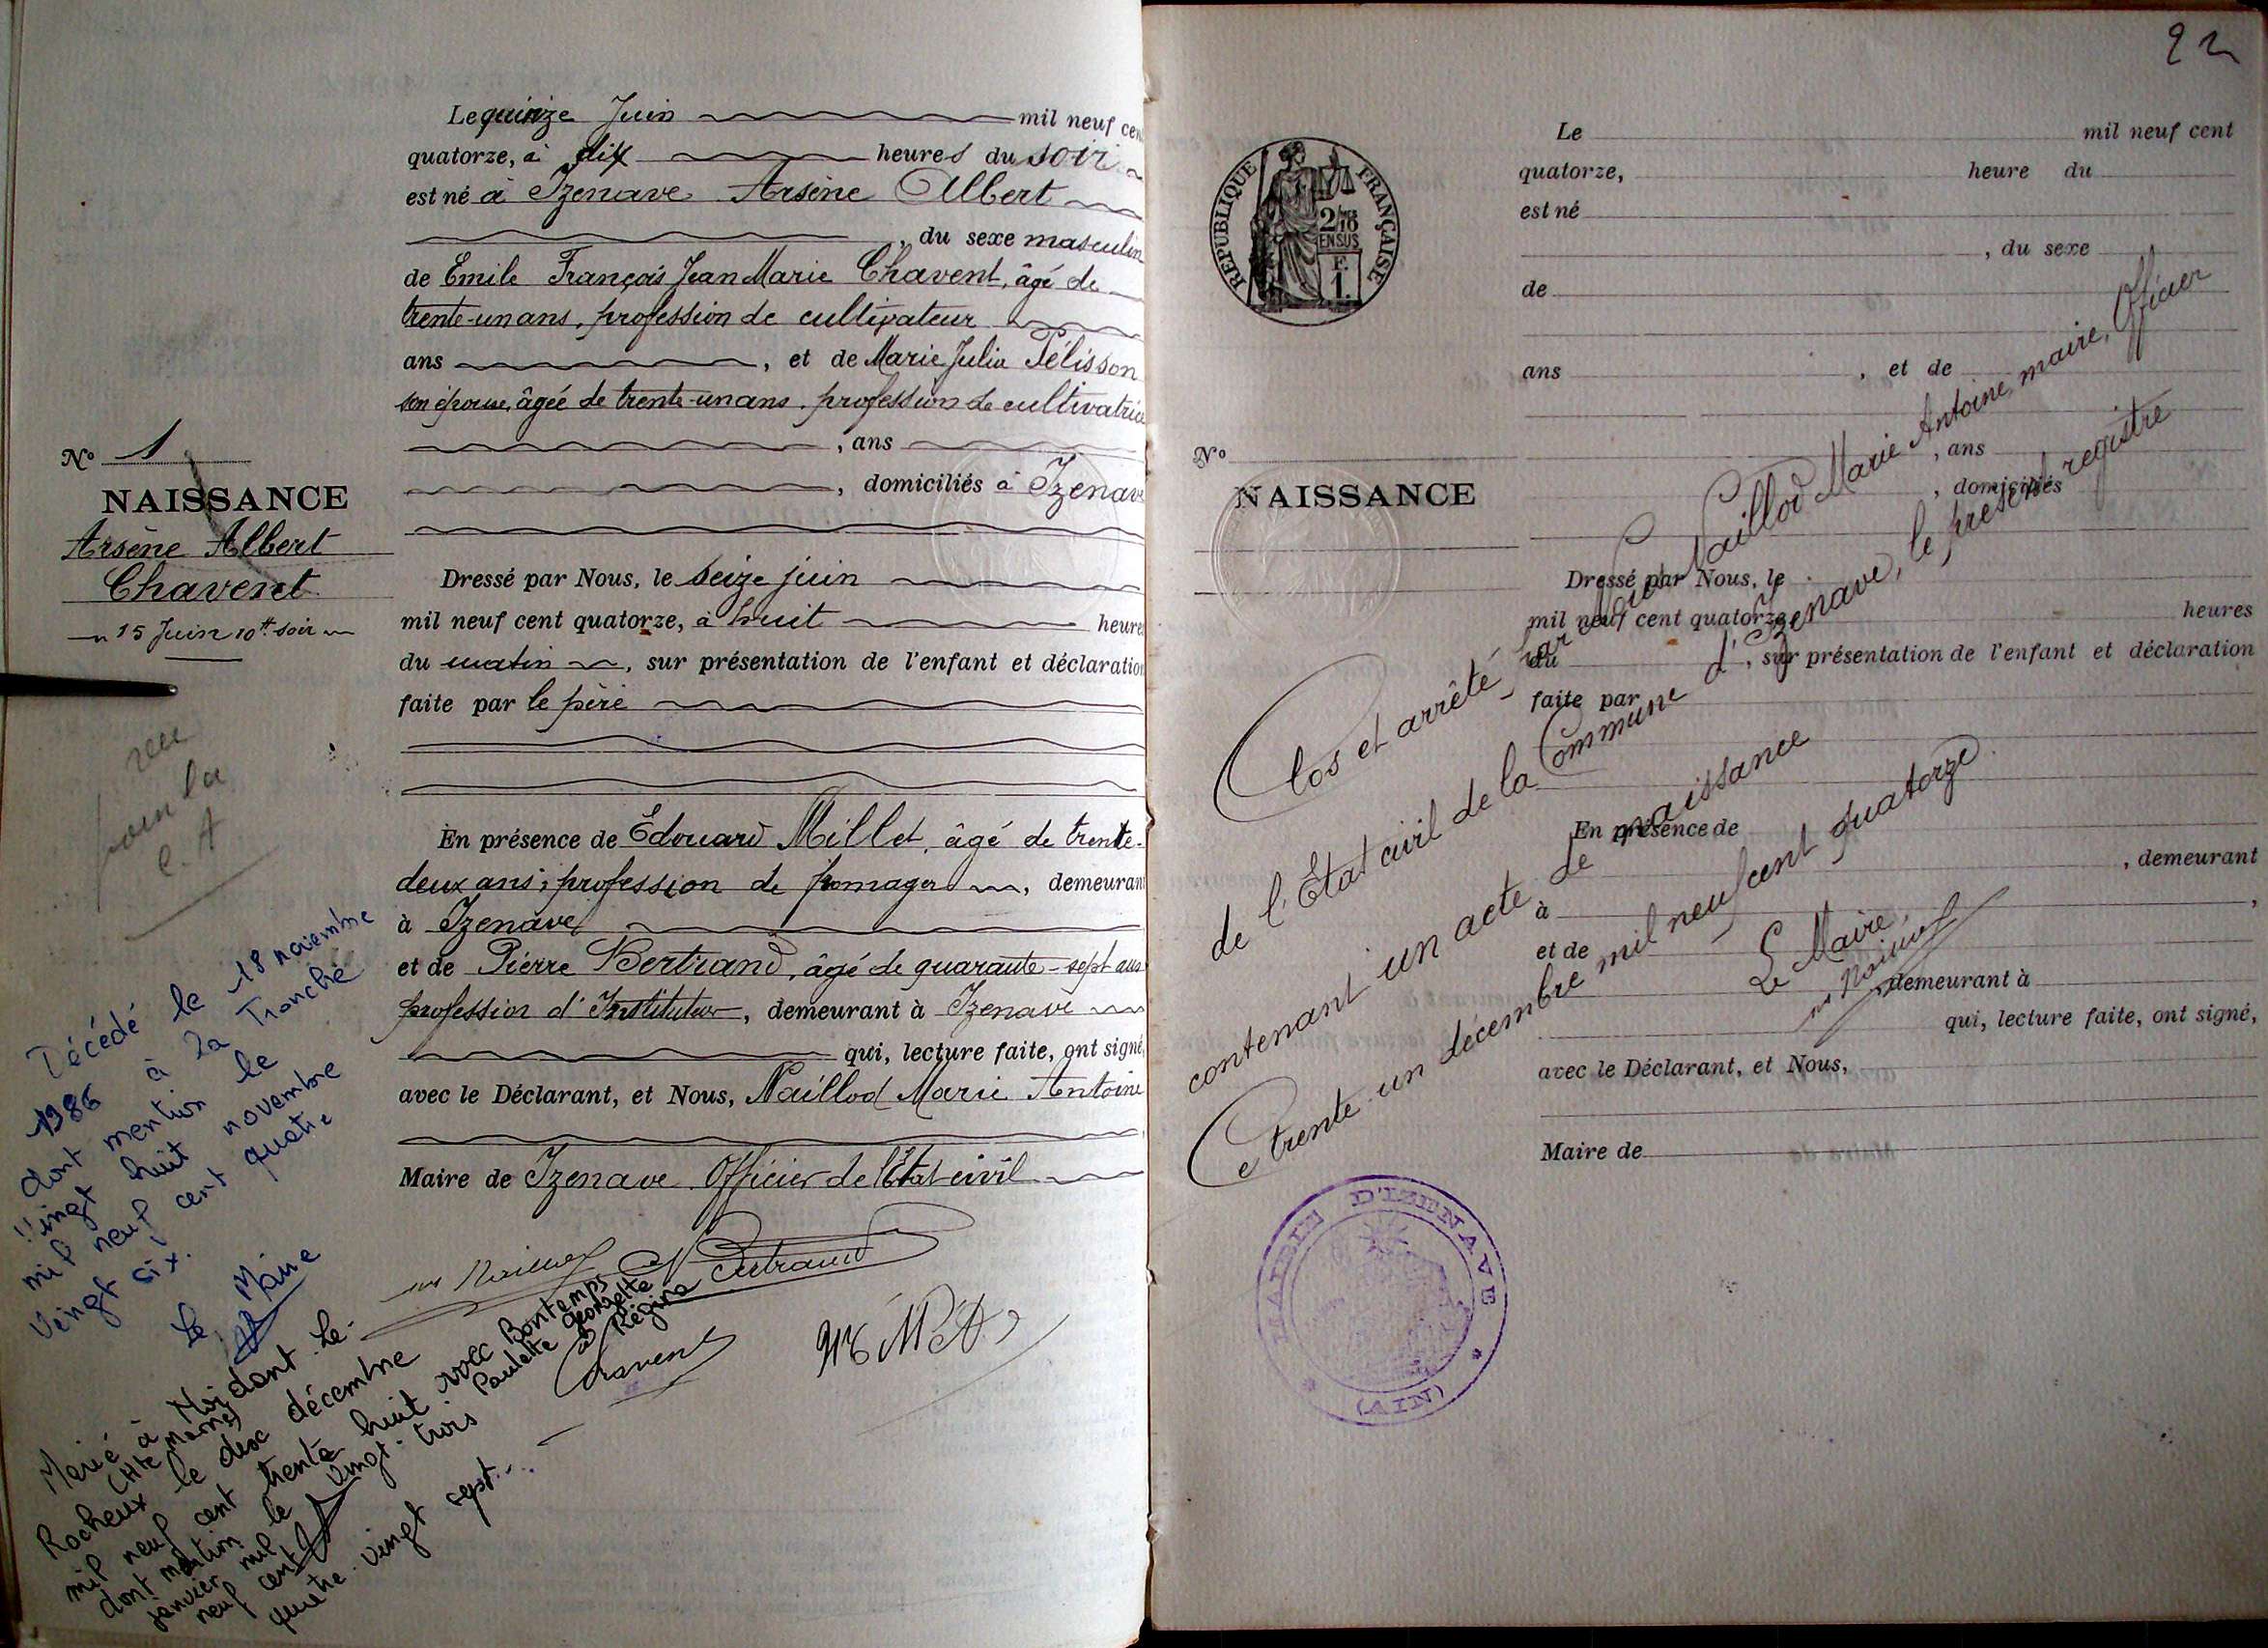 Le quinze Juin mil neuf cen
quatorze, à dix heures du soir
est né à Izenave Arsène Albert
, du sexe masculin
de Emile François Jean Marie Chavent, âgé de
trente-un ans, profession de cultivateur
ans , et de Marie Julia Pélisson
son épouse, âgée de trente-un ans, profession de cultivatrice
, ans
, domiciliés à Izenave
Dressé par Nous, le seize juin
mil neuf cent quatorze, à huit heures
du matin , sur présentation de l'enfant et déclaration
faite par le père
En présence de Edouard Millet, âgé de trente-
deux ans, profession de fromager , demeurant
à Izenave
et de Pierre Bertrand, âgé de quarante-sept ans
profession d'Instituteur, demeurant à Izenave
qui, lecture faite, ont signé,
avec le Déclarant, et Nous, Naillod Marie Antoine
Maire de Izenave Officier de l'Etat civil
Bertrand
Chavent
N° 1
NAISSANCE
Arsène Albert
Chavent
15 Juin 10 h soir
Décédé le 18 novembre
1986 à La Tranche
dont mention le
vingt huit novembre
mil neuf cent quatre
vingt six.
Le Maire
Marié à Noidant-le-
Rocheux (Hte Marne)
le dix décembre
mil neuf cent trente huit avec Bontemps
Paulette Georgette
Régina
dont mention le vingt-trois
janvier mil
neuf cent
quatre-vingt sept.
22
RÉPUBLIQUE FRANÇAISE
2/10
EN SUS
F.
1.
Le mil neuf cent
quatorze, heure du
est né
, du sexe
de
ans , et de
, ans
, domiciliés
N°
NAISSANCE
Dressé par Nous, le
mil neuf cent quatorze heures
du , sur présentation de l'enfant et déclaration
faite par
En présence de
, demeurant
à ,
et de
, demeurant à
qui, lecture faite, ont signé,
avec le Déclarant, et Nous,
Maire de
Clos et arrêté par Naillod Marie Antoine, maire, Officier
de l'Etat civil de la Commune d'Izenave, le présent registre
contenant un acte de naissance
Ce trente-un décembre mil neuf cent quatorze.
Le Maire,
MAIRIE D'IZENAVE
(AIN)